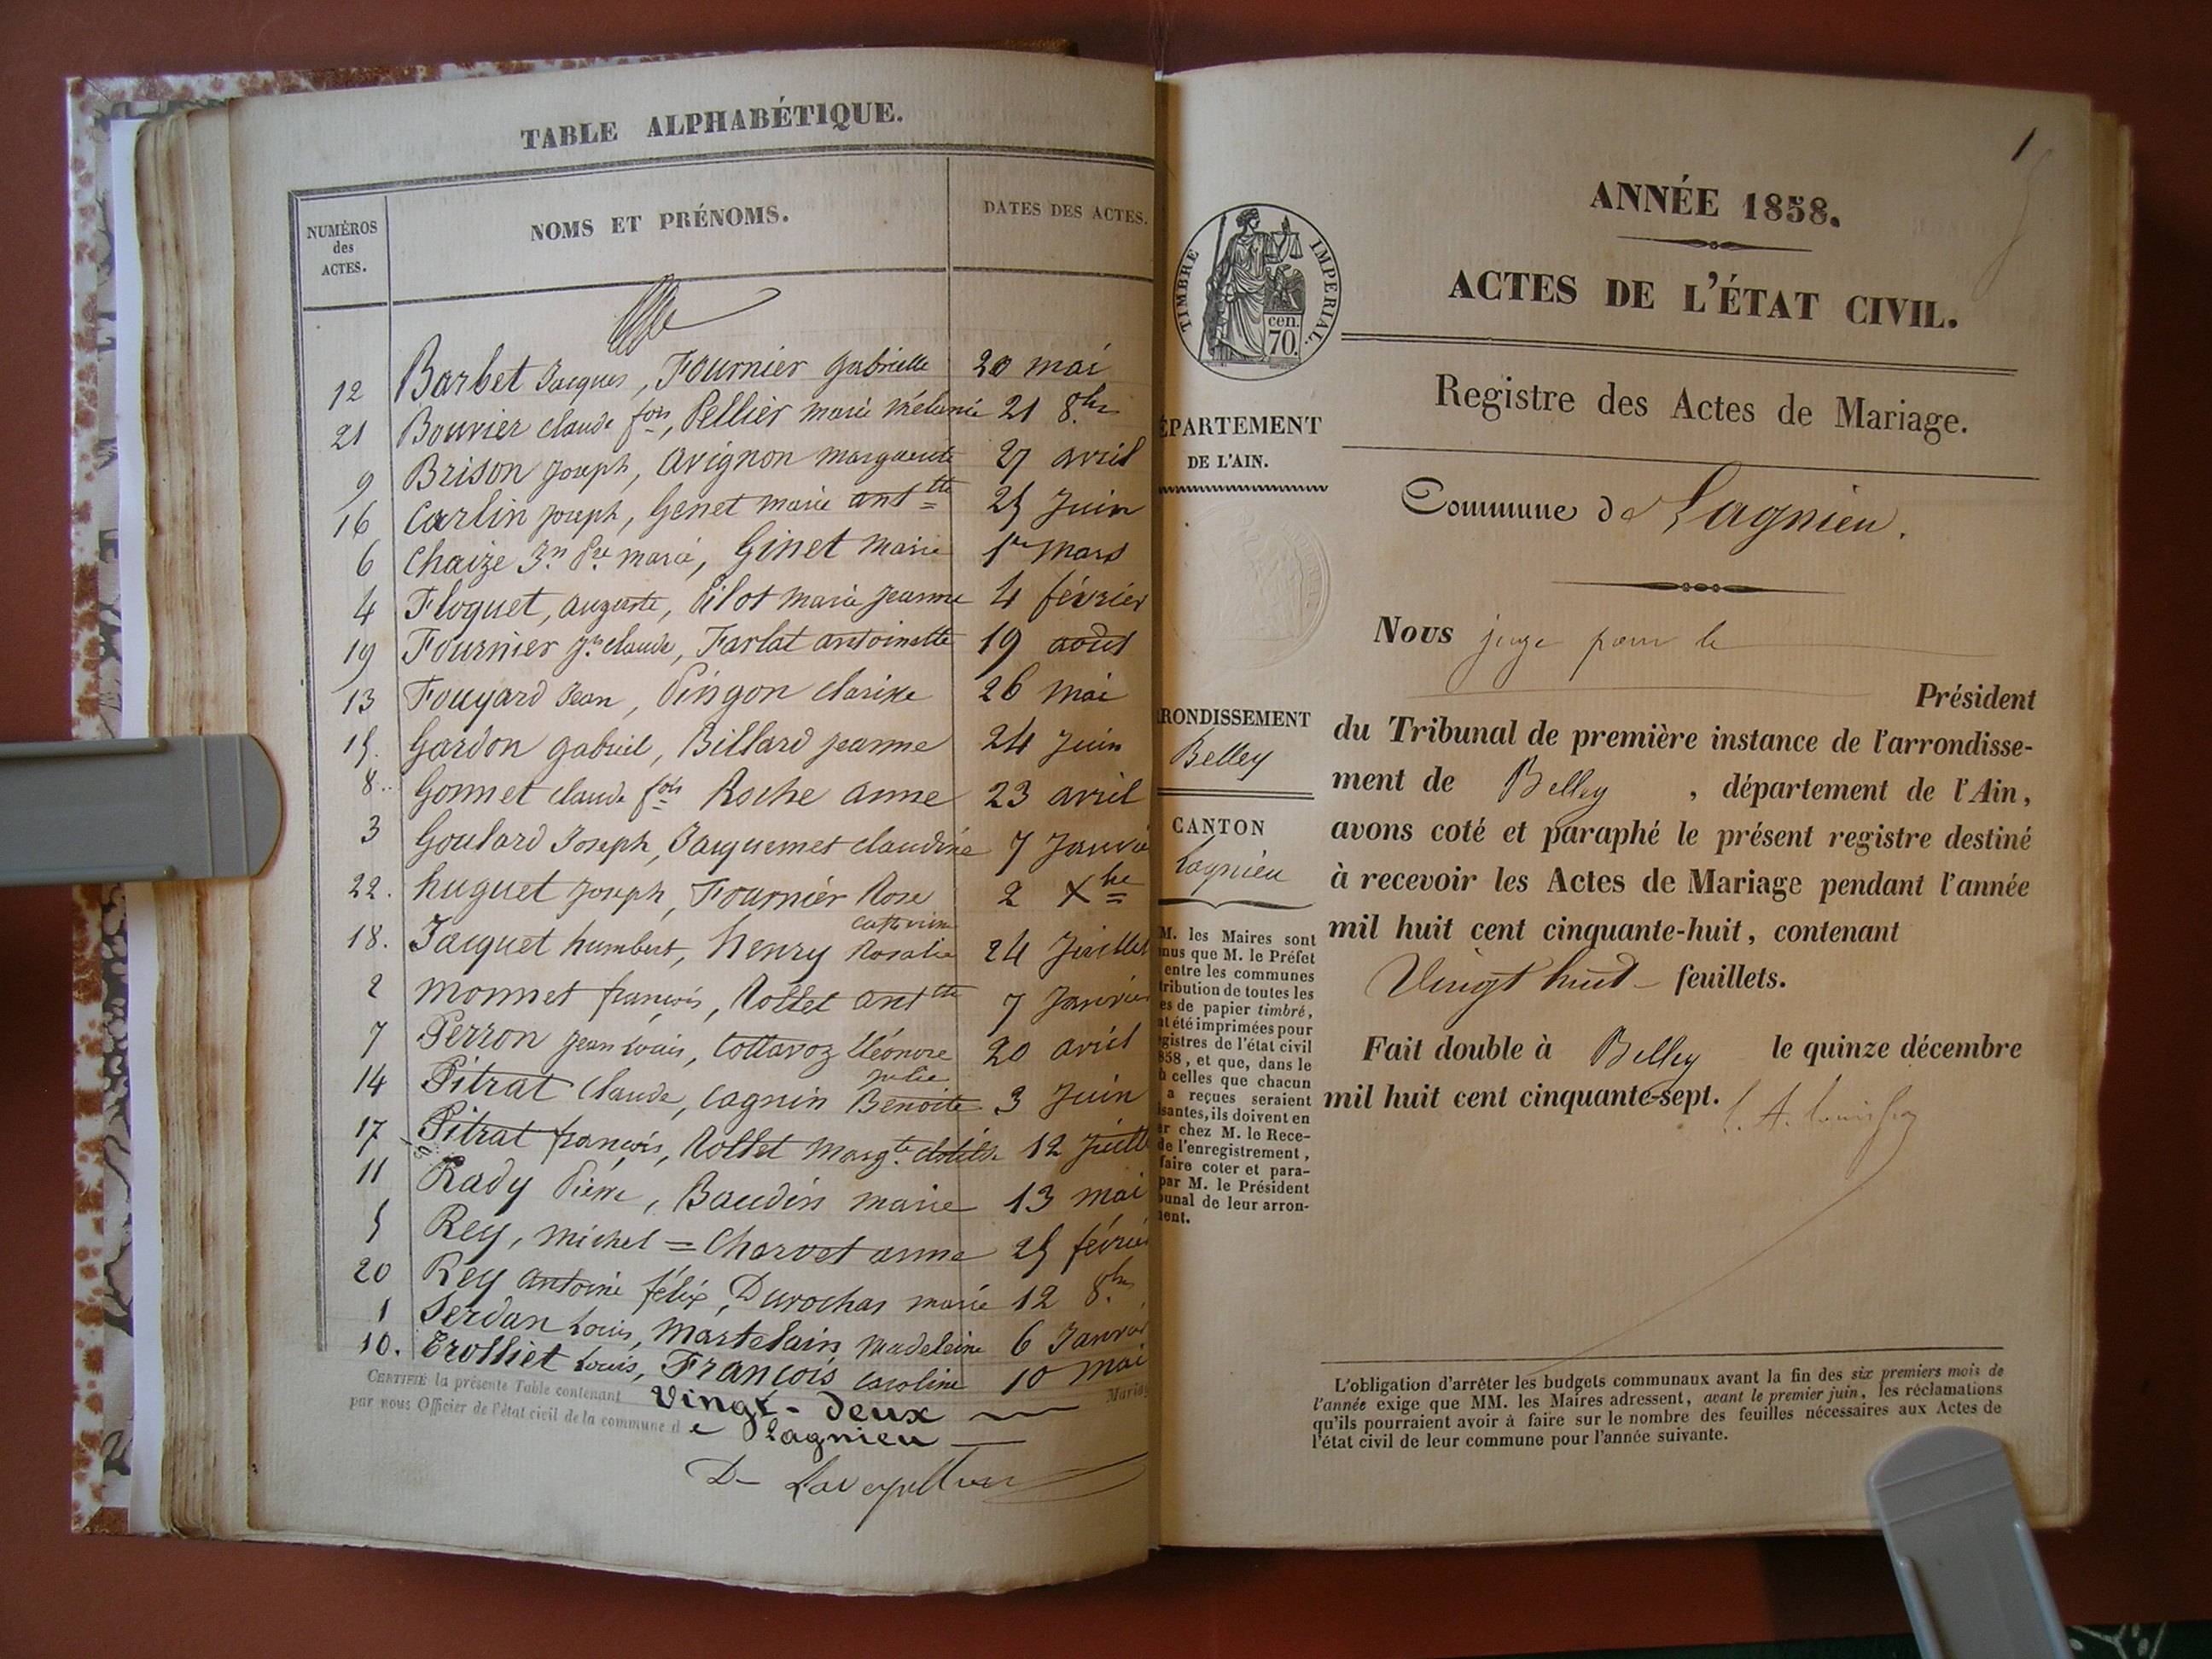 TABLE ALPHABÉTIQUE.
NUMÉROS
des
ACTES.
NOMS ET PRÉNOMS.
DATES DES ACTES.
12 Barbet Jacques, Fournier gabrielle 20 mai
21 Bouvier claude fois, Pellier marie mélanie 21 8bre
9 Brison joseph, avignon marguerite 27 avril
16 Carlin joseph, Genet marie anttte 25 Juin
6 Chaize Jn Pre marie, Ginet marie 1er mars
4 Floquet, auguste, Pilot marie jeanne 4 février
19 Fournier Jn claude, Farlat antoinette 19 août
13 Fouyard Jean, Pingon 26 mai
15. Gardon gabriel, Billard jeanne 24 Juin
8. Gonnet claude fois Roche anne 23 avril
3 Goulard Joseph, Jacquemet claudine 7 Janvie
22. huguet joseph, Fournier Rose 2 Xbre
catherine
18. Jacquet humbert, henry Rosalie 24 Juillet
2 monnet françois, Rollet anttte 7 Janvier
7 Perron jean Louis, Cottavoz Eléonore 20 avril
julie
14 Pitrat Claude, Cagnin Benoite 3 Juin
17 Pitrat françois, Rollet Margte clotilde 12 Juill
11 Rady Pierre, Baudin marie 13 mai
5 Rey, michel = Charvet anne 25 févrie
20 Rey antoine félix, Durochas marie 12 8bre
1 Serdan Louis, Martelain Madeleine 6 Janvie
10. Trolliet Louis, François caroline 10 mai
CERTIFIÉ la présente Table contenant Vingt-deux Mariag
par nous Officier de l'état civil de la commune de Lagnieu
1
ANNÉE 1858.
ACTES DE L'ÉTAT CIVIL.
TIMBRE IMPERIAL.
cen.
70.
Registre des Actes de Mariage.
ÉPARTEMENT
DE L'AIN.
Commune de Lagnieu.
Nous juge pour le
Président
RONDISSEMENT
Belley
du Tribunal de première instance de l'arrondisse-
ment de Belley, département de l'Ain,
CANTON
Lagnieu
avons coté et paraphé le présent registre destiné
à recevoir les Actes de Mariage pendant l'année
mil huit cent cinquante-huit, contenant
Vingt huit feuillets.
Fait double à Belley le quinze décembre
mil huit cent cinquante-sept.
M. les Maires sont
nus que M. le Préfet
entre les communes
tribution de toutes les
es de papier timbré,
nt été imprimées pour
egistres de l'état civil
858, et que, dans le
ù celles que chacun
a reçues seraient
isantes, ils doivent en
er chez M. le Rece-
de l'enregistrement,
faire coter et para-
par M. le Président
bunal de leur arron-
ment.
L'obligation d'arrêter les budgets communaux avant la fin des six premiers mois de
l'année exige que MM. les Maires adressent, avant le premier juin, les réclamations
qu'ils pourraient avoir à faire sur le nombre des feuilles nécessaires aux Actes de
l'état civil de leur commune pour l'année suivante.